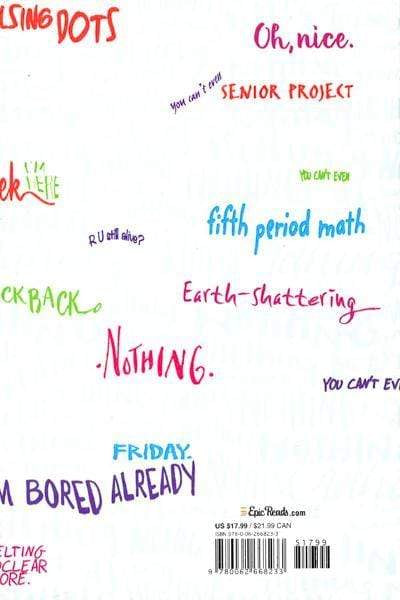 LSING DOTS
Oh, nice.
you can't even
SENIOR PROJECT
I'M
ek HERE
YOU CAN'T EVEN
fifth period math
R U still alive?
CKBACK.
Earth-shattering
.NOTHING.
YOU CAN'T EV
FRIDAY.
M BORED ALREADY
EpicReads.com
US $17.99 / $21.99 CAN
ISBN 978-0-06-266823-3
51799
9 780062 668233
ELTING
CLEAR
ORE.